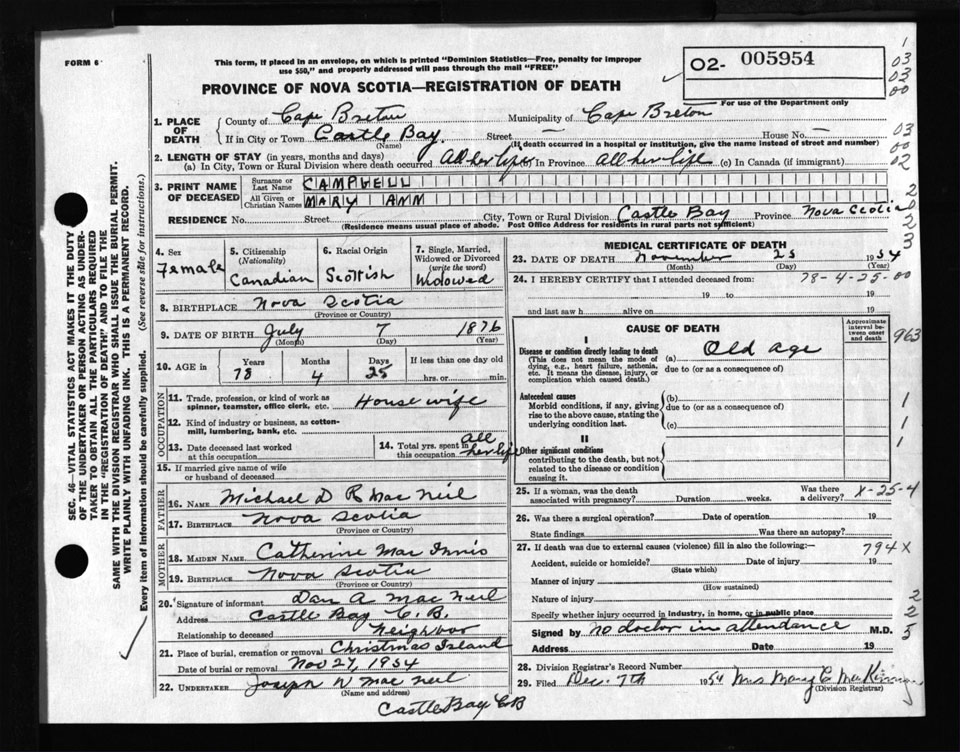 FORM 6
This form, if placed in an envelope, on which is printed "Dominion Statistics—Free, penalty for improper
use $50," and properly addressed will pass through the mail "FREE"
O2- 005954
For use of the Department only
PROVINCE OF NOVA SCOTIA—REGISTRATION OF DEATH
1. PLACE OF DEATH
County of Cape Breton Municipality of Cape Breton
If in City or Town Castle Bay Street — House No. —
(Name) (If death occurred in a hospital or institution, give the name instead of street and number)
2. LENGTH OF STAY (in years, months and days)
(a) In City, Town or Rural Division where death occurred All her life In Province all her life (c) In Canada (if immigrant)
3. PRINT NAME OF DECEASED
Surname or Last Name CAMPBELL
All Given or Christian Names MARY ANN
RESIDENCE No. Street City, Town or Rural Division Castle Bay Province Nova Scotia
(Residence means usual place of abode. Post Office Address for residents in rural parts not sufficient)
4. Sex Female
5. Citizenship (Nationality) Canadian
6. Racial Origin Scottish
7. Single, Married, Widowed or Divorced (write the word) Widowed
8. BIRTHPLACE Nova Scotia
(Province or Country)
9. DATE OF BIRTH July 7 1876
(Month) (Day) (Year)
10. AGE in Years 78 Months 4 Days 25 If less than one day old hrs. or min.
OCCUPATION
11. Trade, profession, or kind of work as spinner, teamster, office clerk, etc. House wife
12. Kind of industry or business, as cotton-mill, lumbering, bank, etc.
13. Date deceased last worked at this occupation
14. Total yrs. spent in this occupation all her life
15. If married give name of wife or husband of deceased
FATHER
16. NAME Michael D R Mac Neil
17. BIRTHPLACE Nova Scotia
(Province or Country)
MOTHER
18. MAIDEN NAME Catherine Mac Innis
19. BIRTHPLACE Nova Scotia
(Province or Country)
20. Signature of informant Dan A Mac Neil
Address Castle Bay C.B.
Relationship to deceased Neighbor
21. Place of burial, cremation or removal Christmas Island
Date of burial or removal Nov 27, 1954
22. UNDERTAKER Joseph N Mac Neil
(Name and address)
Castle Bay CB
MEDICAL CERTIFICATE OF DEATH
23. DATE OF DEATH November 25 1954
(Month) (Day) (Year)
24. I HEREBY CERTIFY that I attended deceased from: 78-4-25-00
19 to 19
and last saw h alive on 19
CAUSE OF DEATH
Approximate interval between onset and death
I
Disease or condition directly leading to death (a) Old age
(This does not mean the mode of dying, e.g., heart failure, asthenia, etc. It means the disease, injury, or complication which caused death.) due to (or as a consequence of)
Antecedent causes (b)
Morbid conditions, if any, giving rise to the above cause, stating the underlying condition last. due to (or as a consequence of)
(c)
II
Other significant conditions
contributing to the death, but not related to the disease or condition causing it.
25. If a woman, was the death associated with pregnancy? Duration weeks. Was there a delivery? X-25-4
26. Was there a surgical operation? Date of operation 19
State findings Was there an autopsy?
27. If death was due to external causes (violence) fill in also the following:— 794X
Accident, suicide or homicide? Date of injury 19
(State which)
Manner of injury
(How sustained)
Nature of injury
Specify whether injury occurred in industry, in home, or in public place
Signed by no doctor in attendance M.D.
Address Date 19
28. Division Registrar's Record Number
29. Filed Dec. 7th 1954 Mrs Mary C
(Division Registrar)
1
03
03
00
03
00
02
2
0
2
3
963
1
1
1
2
2
5
SEC. 46—VITAL STATISTICS ACT MAKES IT THE DUTY
OF THE UNDERTAKER OR PERSON ACTING AS UNDER-
TAKER TO OBTAIN ALL THE PARTICULARS REQUIRED
IN THE "REGISTRATION OF DEATH" AND TO FILE THE
SAME WITH THE DIVISION REGISTRAR WHO SHALL ISSUE THE BURIAL PERMIT.
WRITE PLAINLY WITH UNFADING INK. THIS IS A PERMANENT RECORD.
Every item of information should be carefully supplied. (See reverse side for instructions.)